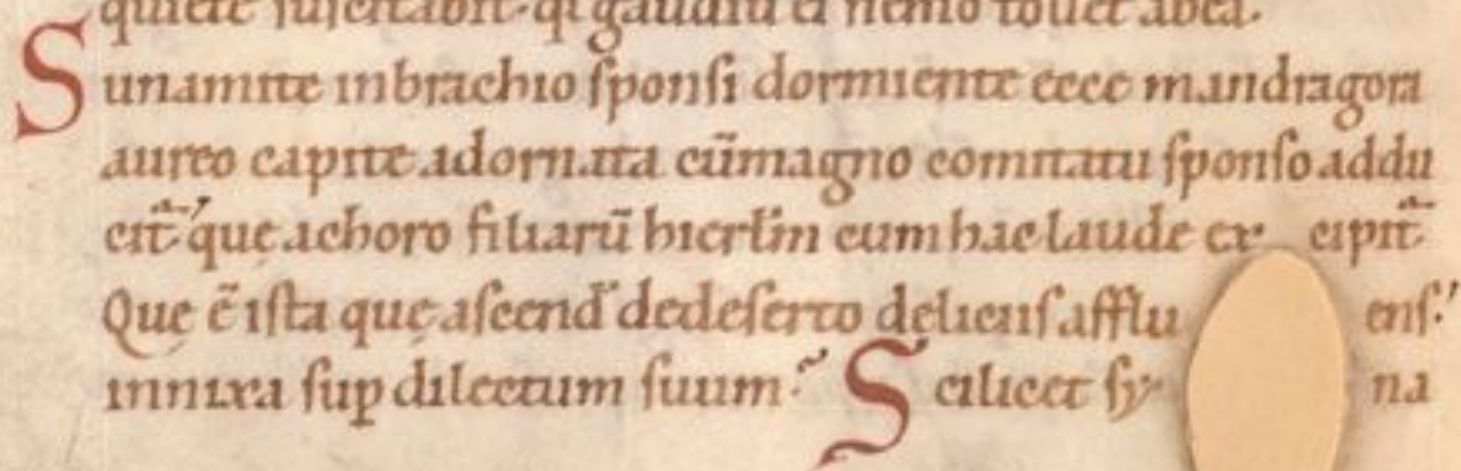 quiete suscitabit. q̇ gaudiū ei nemo tollet ab ea.
Sunamite inbrachio sponsi dormiente ecce mandragora
aureo capite adornata cū magno comitatu sponso addu
cit᷑ que̜ achoro filiarū hierłm cum hac laude ex cipit᷑.
Que̜ ē ista que̜ ascend̄ dedeserto deliciis afflu ens.
innixa sup dilectum suum. Scilicet sy na